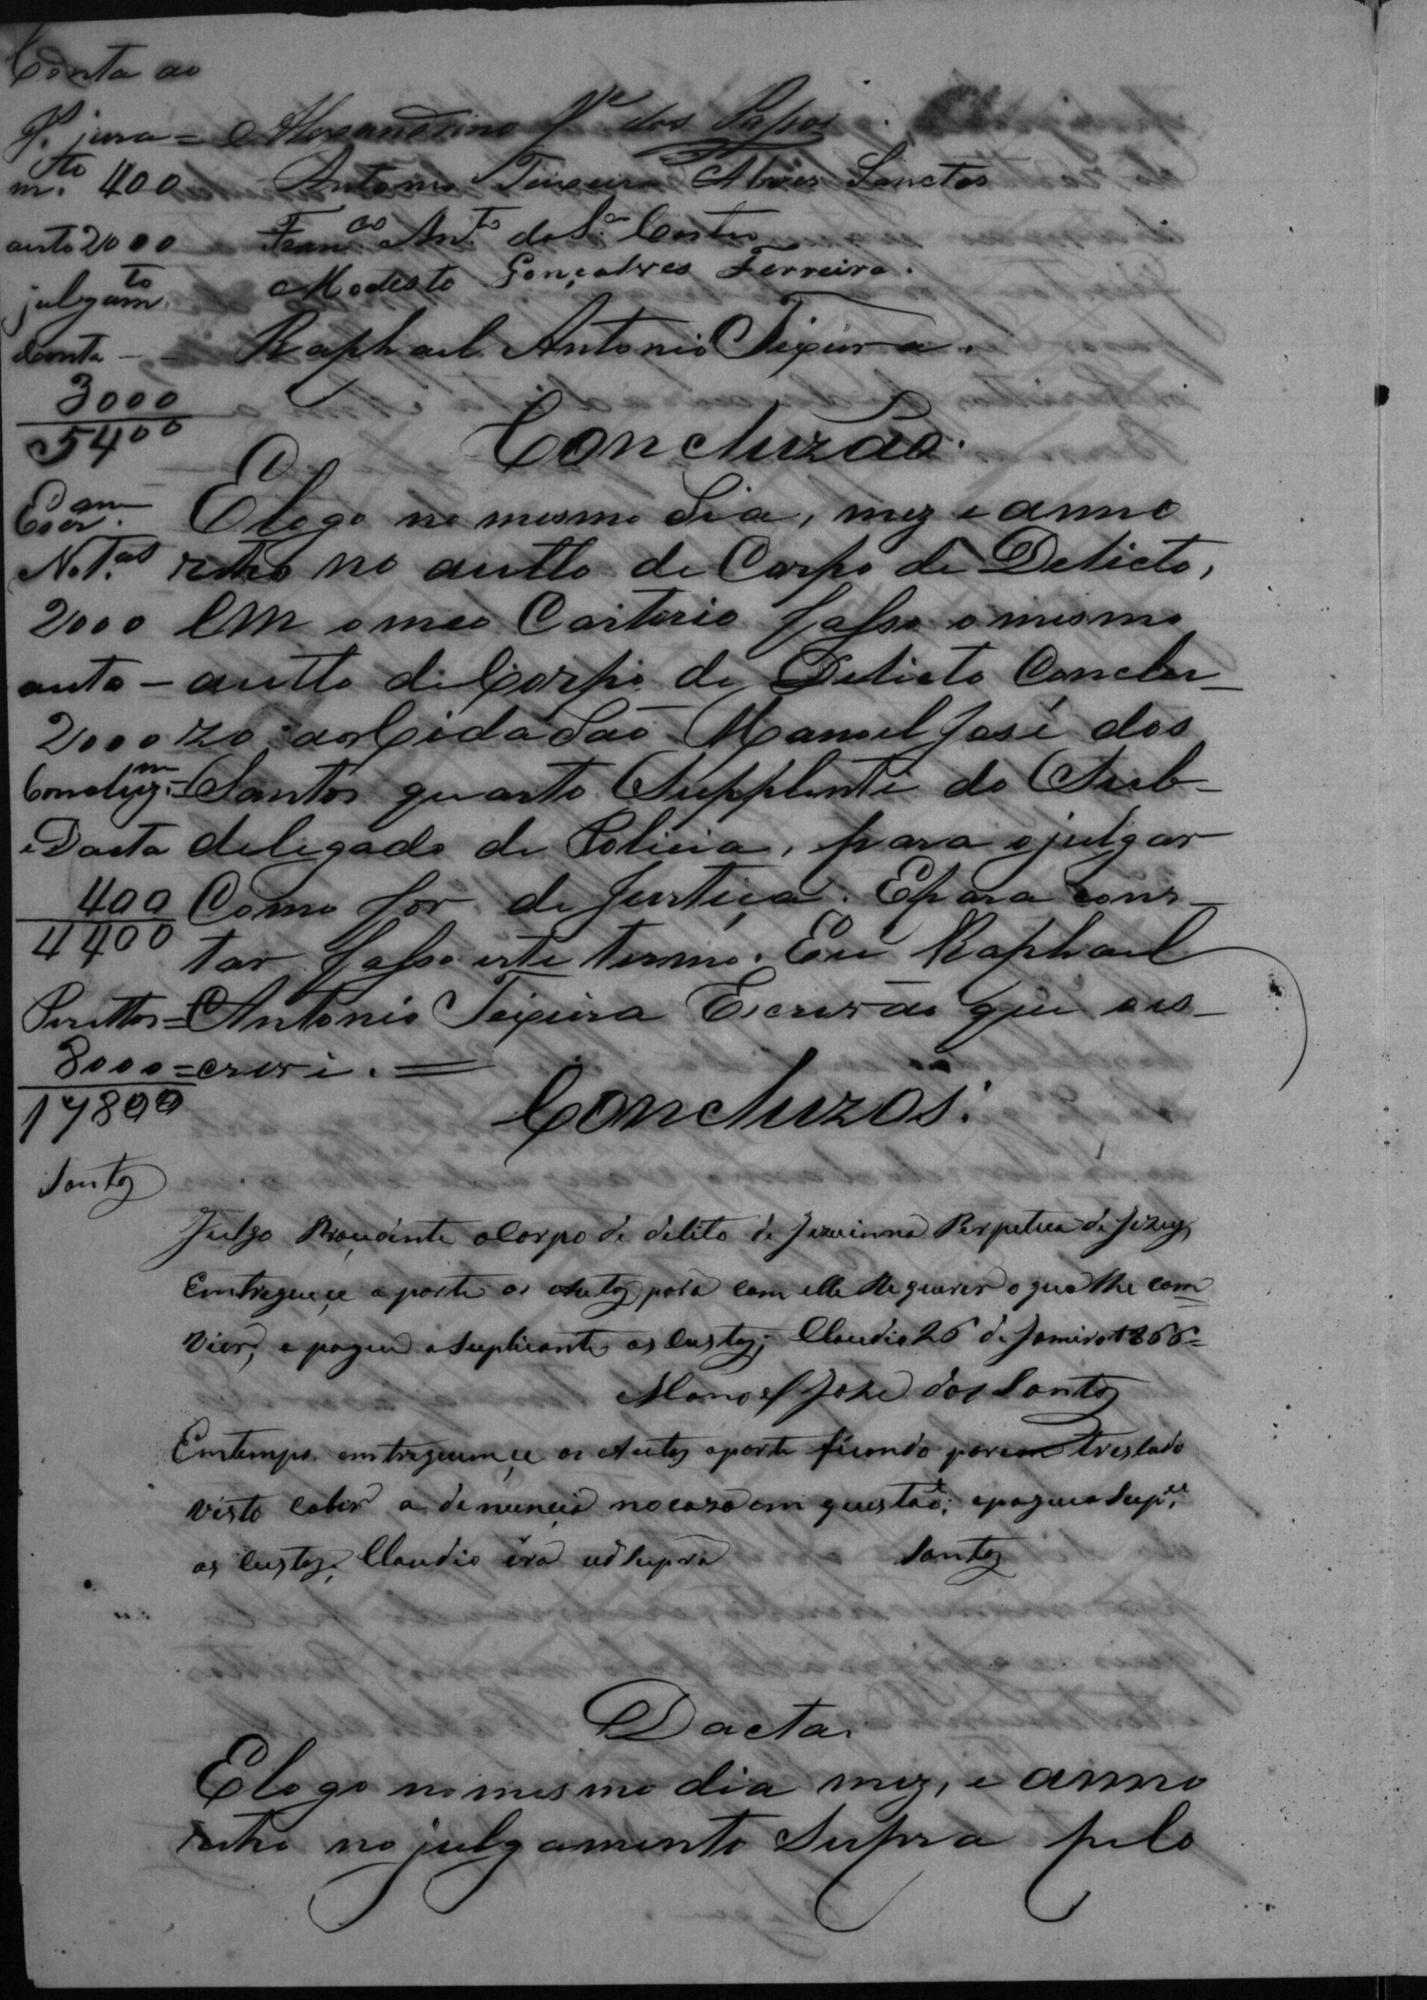 Conta ao
J. jura=
m.to 400
auto 2000
julgam.to
Conta - -
3000
5400
Escr.am
N.T.as
2000
auto -
2000
Concluz.m=
e Dacta
400
4400
Perittos=
8000=
17800
Santos
Alexandrino dos Passos
Antonio Teixeira Alves Sanctos
Fran.co Ant.o da S.a Castro
Modesto Gonçalves Ferreira.
Raphael Antonio Teixeira.
Concluzão.
E logo no mesmo dia, mez e anno
rtro no autto de Corpo de Delicto,
em o meo Cartorio fasso o mesmo
autto de Corpo de Delicto Conclu-
zo ao Cidadão Manoel José dos
Santos quarto Supplente do Sub-
delegado de Policia, para o julgar
Como for de Justiça. E para cons-
tar fasso este termo. Eu Raphael
Antonio Teixeira Escrivão que o es-
crevi. =
Concluzos.
Julgo Procidente o Corpo de delito de Jezuinna Perpetua de Jezuz,
Emtregueçe a parte os Autos para com elle Requerer o que lhe com
vier, e pague a Suplicante as Custas; Claudio 26 de Janeiro 1866=
Manoel Joze dos Santos
Emtempo emtreguemçe os Autos a parte ficando porem treslado
visto caber a denuncia no cazo em questão; e pague a Sup.e
as Custas; Claudio éra ud Supra Santos
Dacta.
E logo no mesmo dia mez, e anno
rtro no julgamento Supra pelo